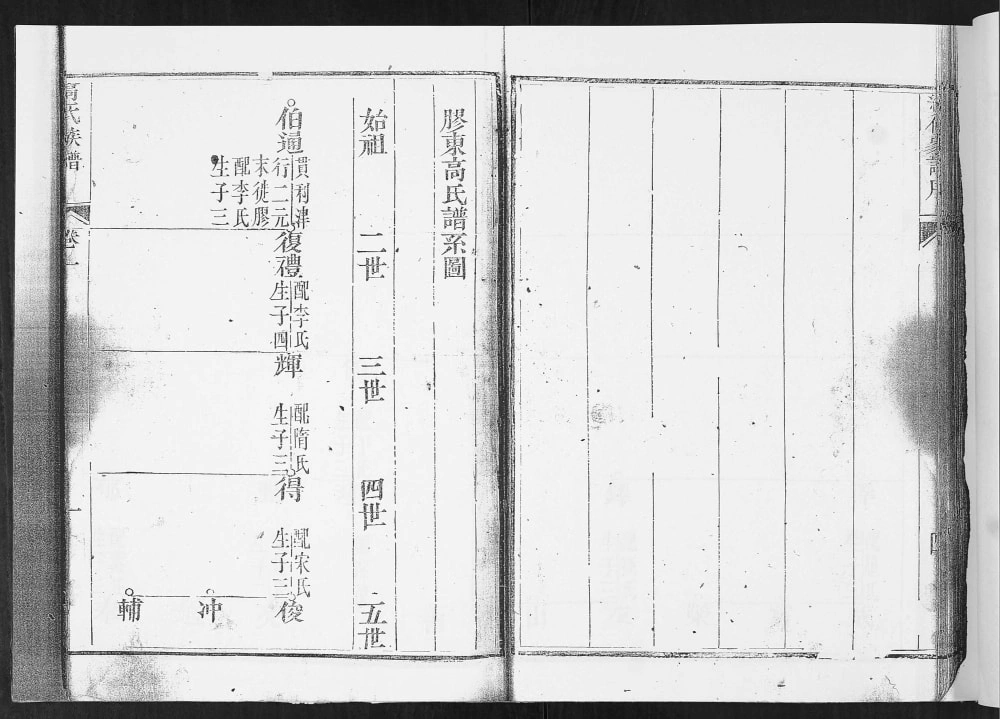 膠東高氏譜系圖
始祖 二世 三世 四世 五世
伯通
貫利津
行二元
末徙膠
配李氏
生子三
復禮
配李氏
生子四
輝
配隋氏
生子三
得
配宋氏
生子三
俊
冲
輔
高氏族譜 卷一